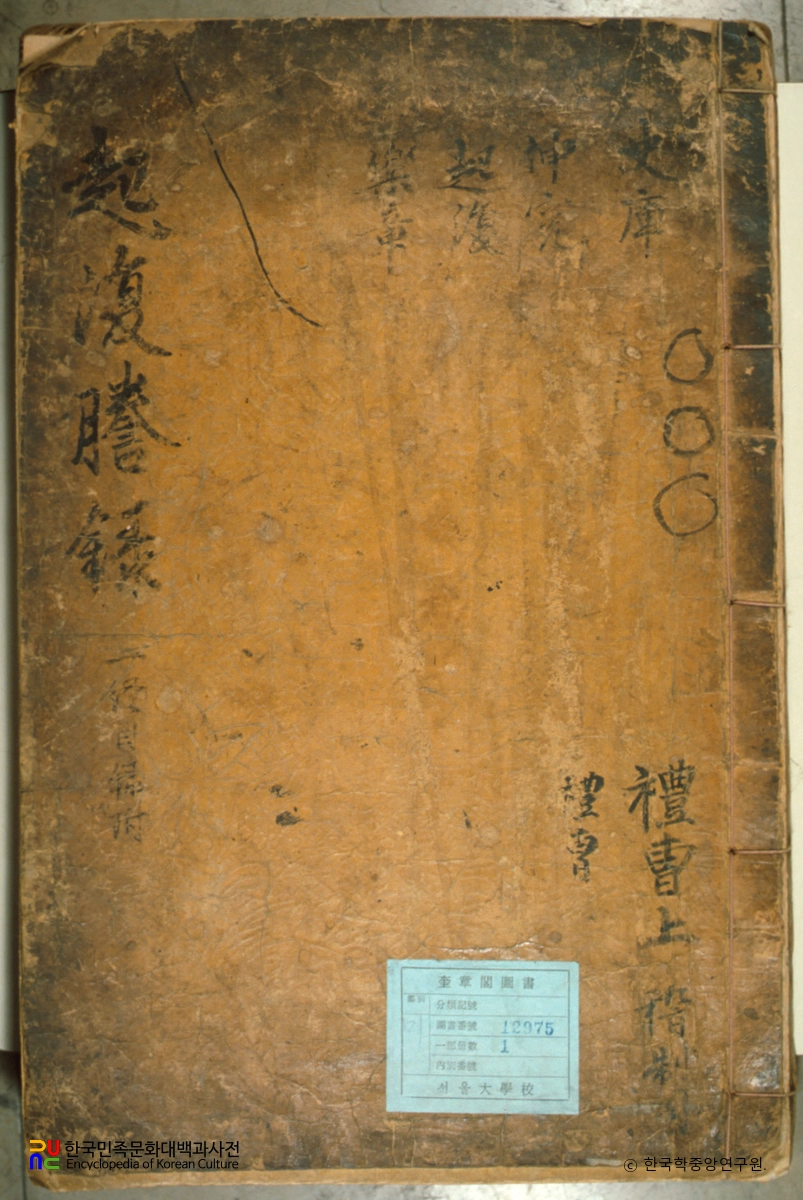 史庫
伸寃
起復
樂章
禮曹上
稽制
禮曹
起復謄錄
目錄附
奎章閣圖書
分類記號
圖書番號 12975
一部冊數 1
內別番號
서울大學校
한국민족문화대백과사전
Encyclopedia of Korean Culture
© 한국학중앙연구원.